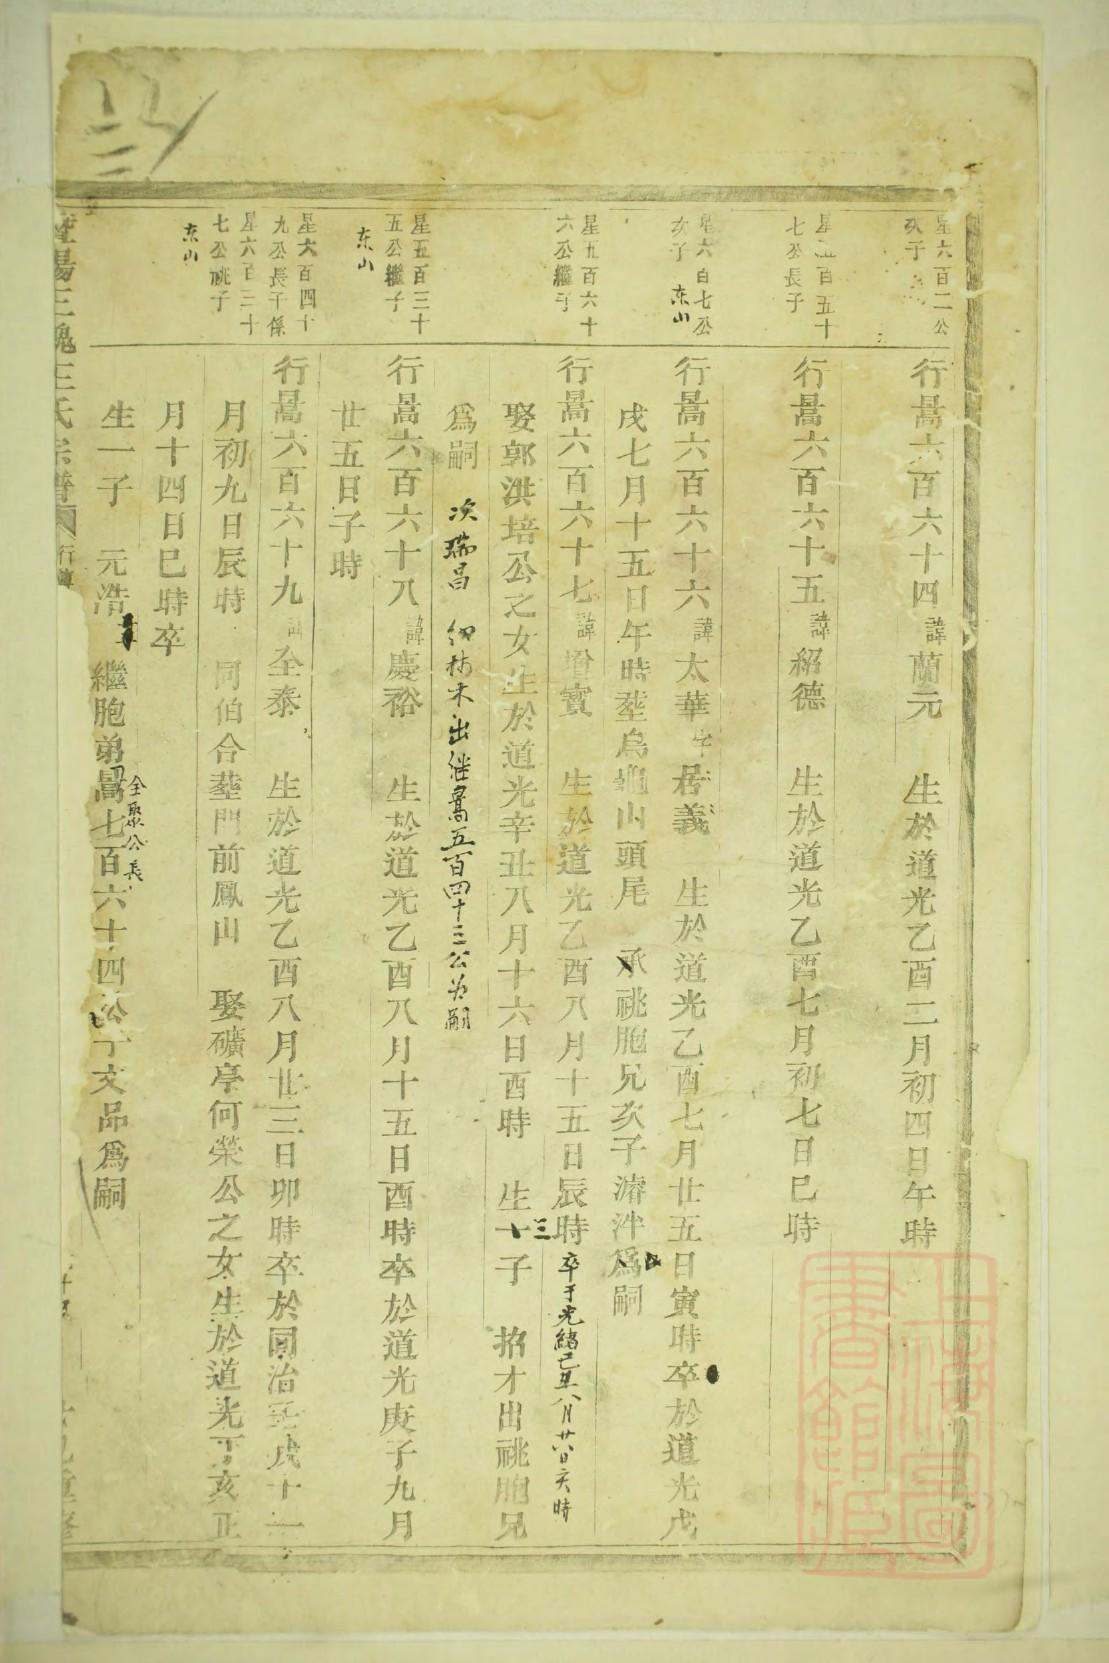 星六百二公
次子
行暠六百六十四諱蘭元 生於道光乙酉二月初四日午時
星五百五十
七公長子
行暠六百六十五諱紹德 生於道光乙酉七月初七日巳時
星六百七公
次子 东山
行暠六百六十六諱太華字居義 生於道光乙酉七月廿五日寅時卒於道光戊
戌七月十五日午時塟烏龜山頭尾 承祧胞兄次子濬泮爲嗣
星五百六十
六公繼子
行暠六百六十七諱增寶 生於道光乙酉八月十五日辰時 卒于光緒己丑八月廿六日亥時
娶郭洪培公之女生於道光辛丑八月十六日酉時 生三子 招才出祧胞兄
爲嗣 次瑞昌 細材木出继暠五百四十三公为嗣
星五百三十
五公繼子
东山
行暠六百六十八諱慶裕 生於道光乙酉八月十五日酉時卒於道光庚子九月
廿五日子時
星六百四十
九公長子係
星六百三十
七公祧子
东山
行暠六百六十九諱全泰 生於道光乙酉八月廿三日卯時卒於同治壬戌十一
月初九日辰時 同伯合塟門前鳳山 娶礦亭何榮公之女生於道光丁亥正
月十四日巳時卒
生一子 元浩 繼胞弟暠七百六十四公丁文品爲嗣
全聚公長
暨陽三槐王氏宗譜 行傳
上海圖書館藏